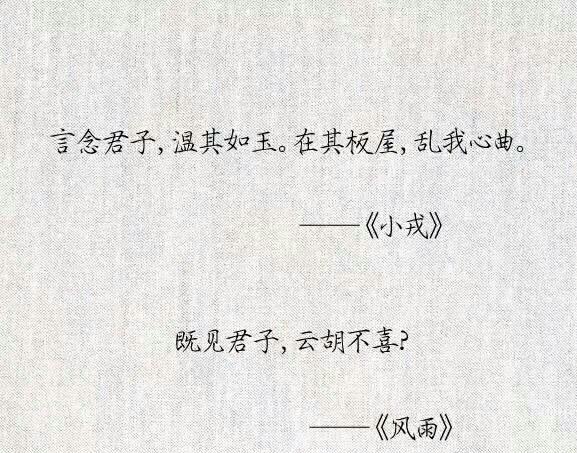 言念君子,温其如玉。在其板屋,乱我心曲。
——《小戎》
既见君子,云胡不喜?
——《风雨》